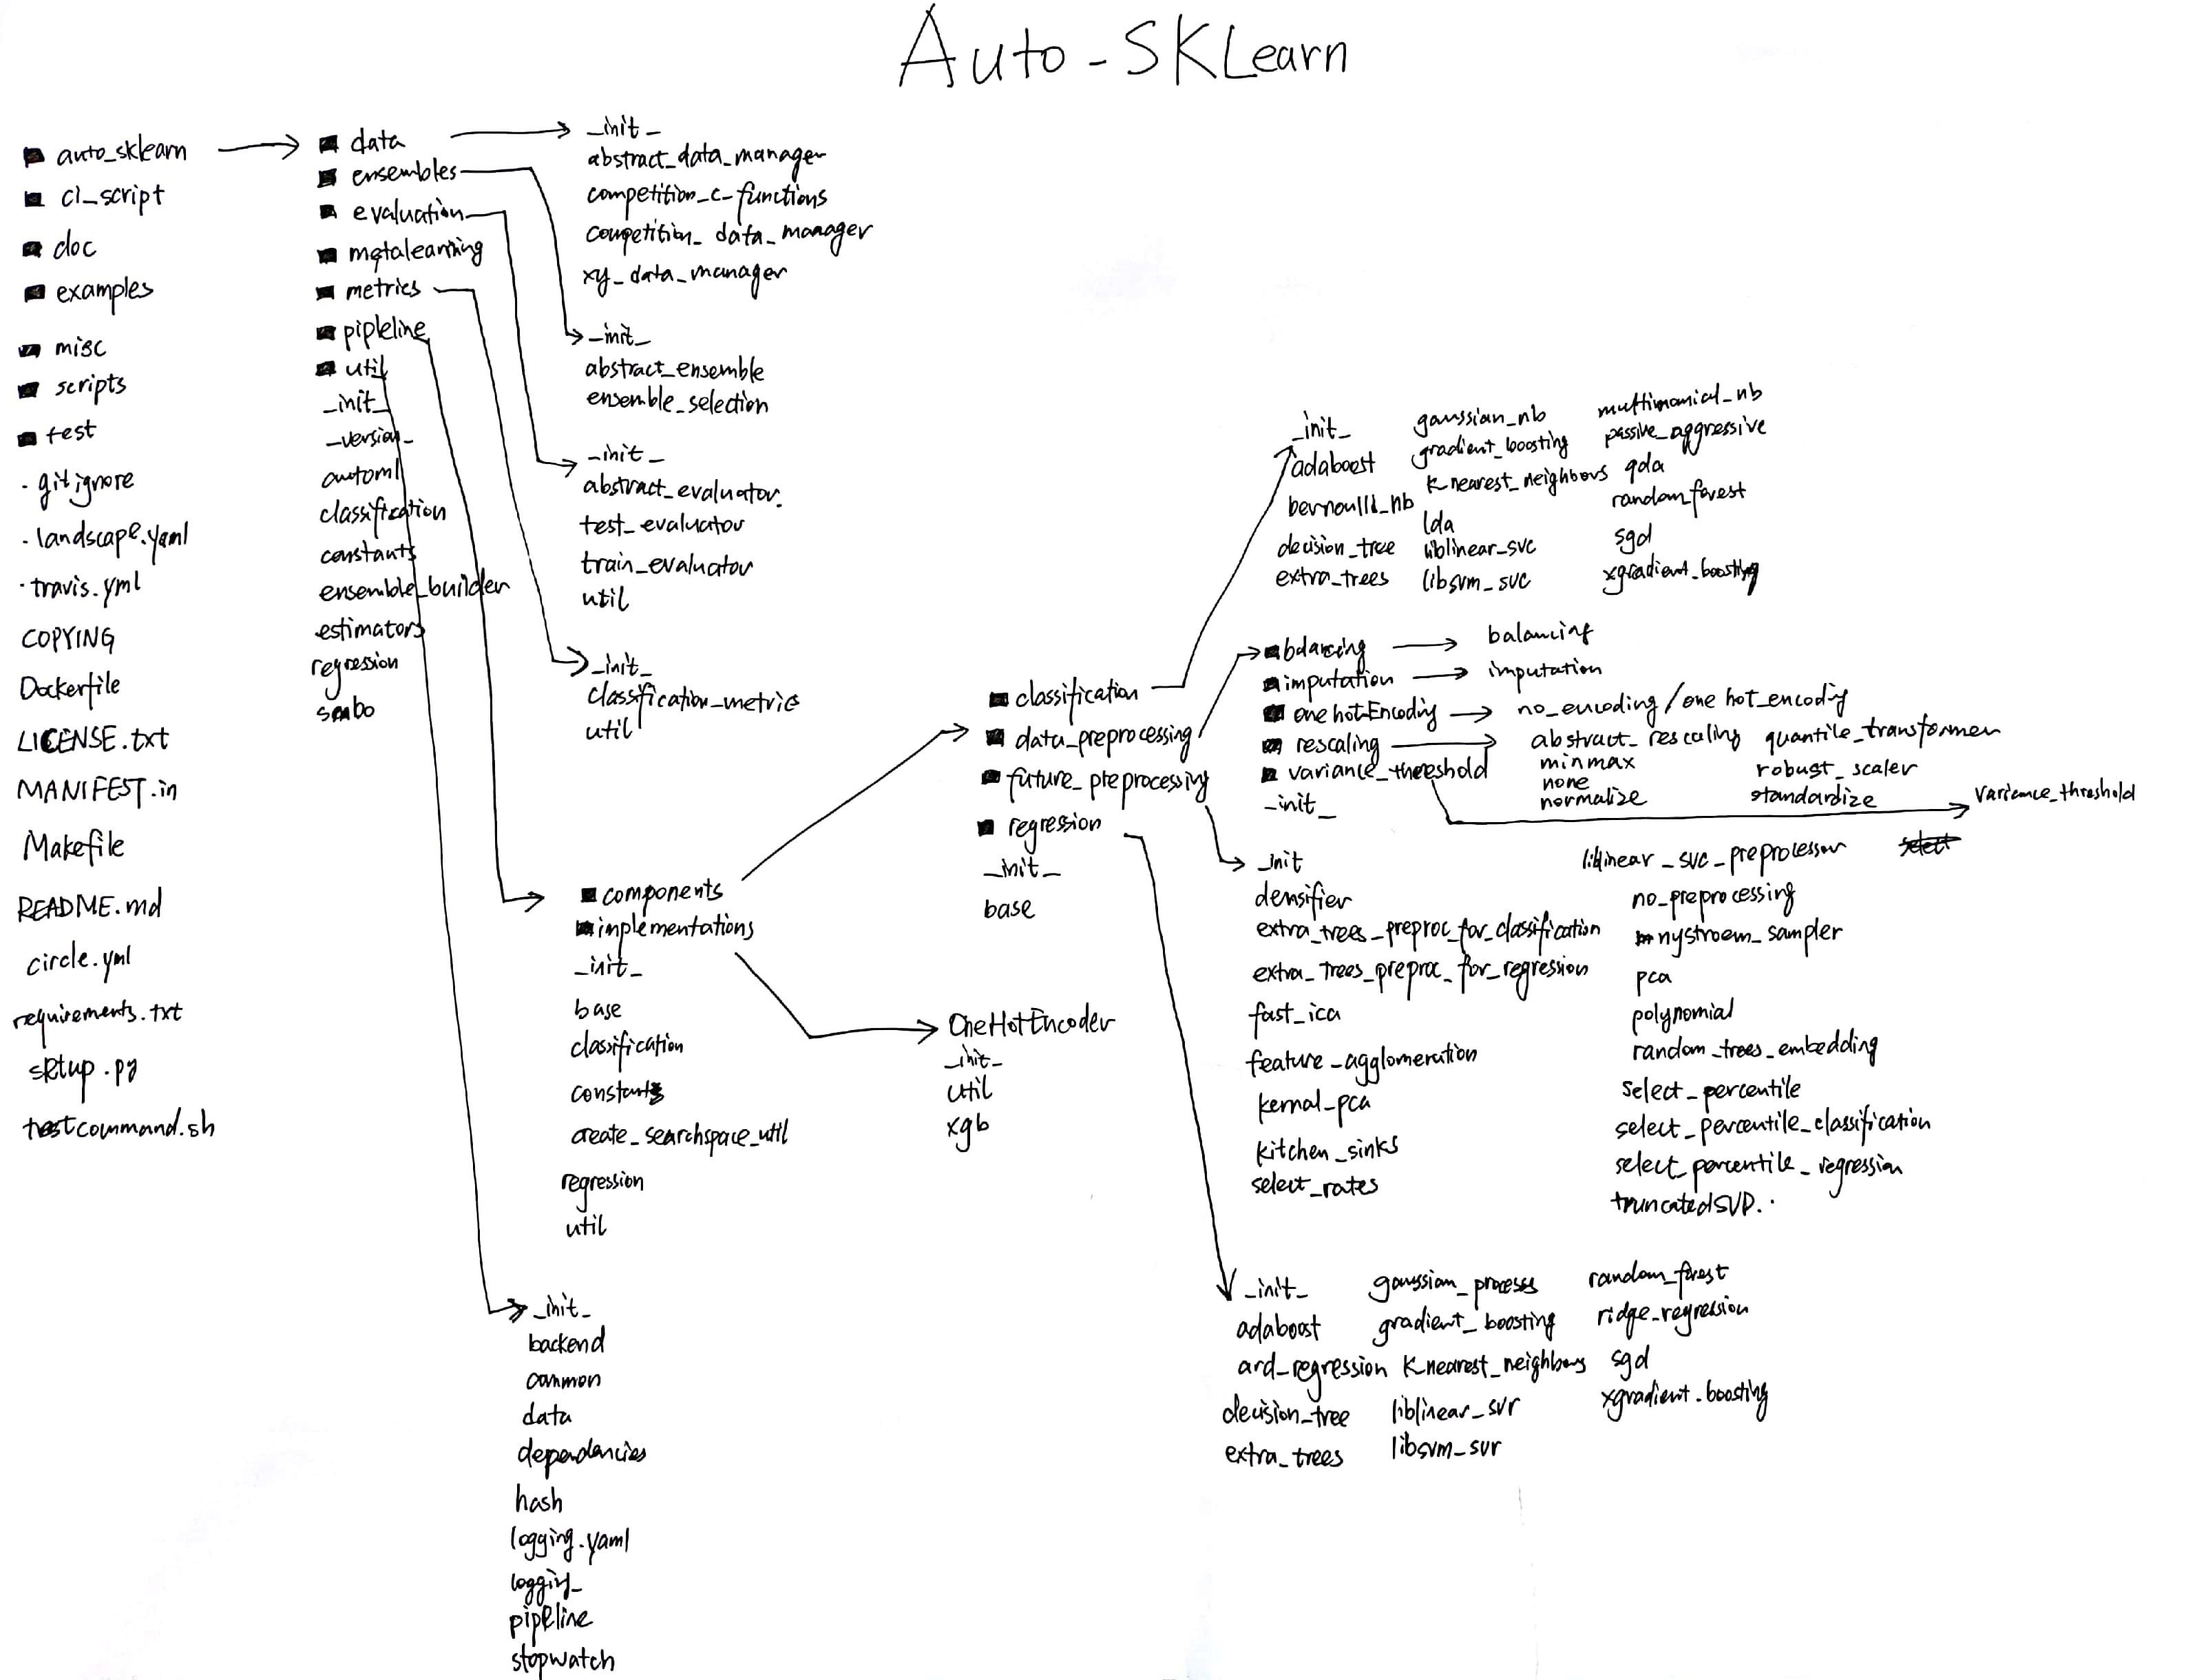 Auto-SKLearn
auto_sklearn
ci_script
doc
examples
misc
scripts
test
.gitignore
.landscape.yaml
.travis.yml
COPYING
Dockerfile
LICENSE.txt
MANIFEST.in
Makefile
README.md
circle.yml
requirements.txt
setup.py
testcommand.sh
data
ensembles
evaluation
metalearning
metrics
pipleline
util
_init_
_version_
automl
classification
constants
ensemble_builder
estimators
regression
smbo
_init_
abstract_data_manager
competition_c_functions
competition_data_manager
xy_data_manager
_init_
abstract_ensemble
ensemble_selection
_init_
abstract_evaluator.
test_evaluator
train_evaluator
util
_init_
classification_metric
util
components
implementations
_init_
base
classification
constants
create_searchspace_util
regression
util
_init_
backend
common
data
dependencies
hash
logging.yaml
logging_
pipeline
stopwatch
classification
data_preprocessing
future_preprocessing
regression
_init_
base
OneHotEncoder
_init_
util
xgb
_init_
adaboost
bernoulli_nb
decision_tree
extra_trees
gaussian_nb
gradient_boosting
k nearest_neighbors
lda
liblinear_svc
libsvm_svc
multimonial_nb
passive_aggressive
qda
random_forest
sgd
xgradient_boosting
balancing
balancing
imputation
imputation
one hotEncoding
no_encoding / one hot_encoding
rescaling
abstract_rescaling
minmax
none
normalize
quantile_transformer
robust_scaler
standardize
variance_threeshold
variance_threshold
_init_
_init
densifier
extra_trees_preproc_for_classification
extra_trees_preproc_for_regression
fast_ica
feature_agglomeration
kernal_pca
kitchen_sinks
select_rates
liblinear_svc_preprocessor
select
no_preprocessing
nystroem_sampler
pca
polynomial
random_trees_embedding
select_percentile
select_percentile_classification
select_percentile_regression
truncatedSVD.
_init_
adaboost
ard_regression
decision_tree
extra_trees
gaussian_process
gradient_boosting
k nearest_neighbors
liblinear_svr
libsvm_svr
random_forest
ridge_regression
sgd
xgradient.boosting